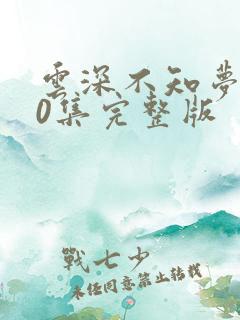 雲深不知夢
0集完整版
戰七少
未經同意禁止轉載